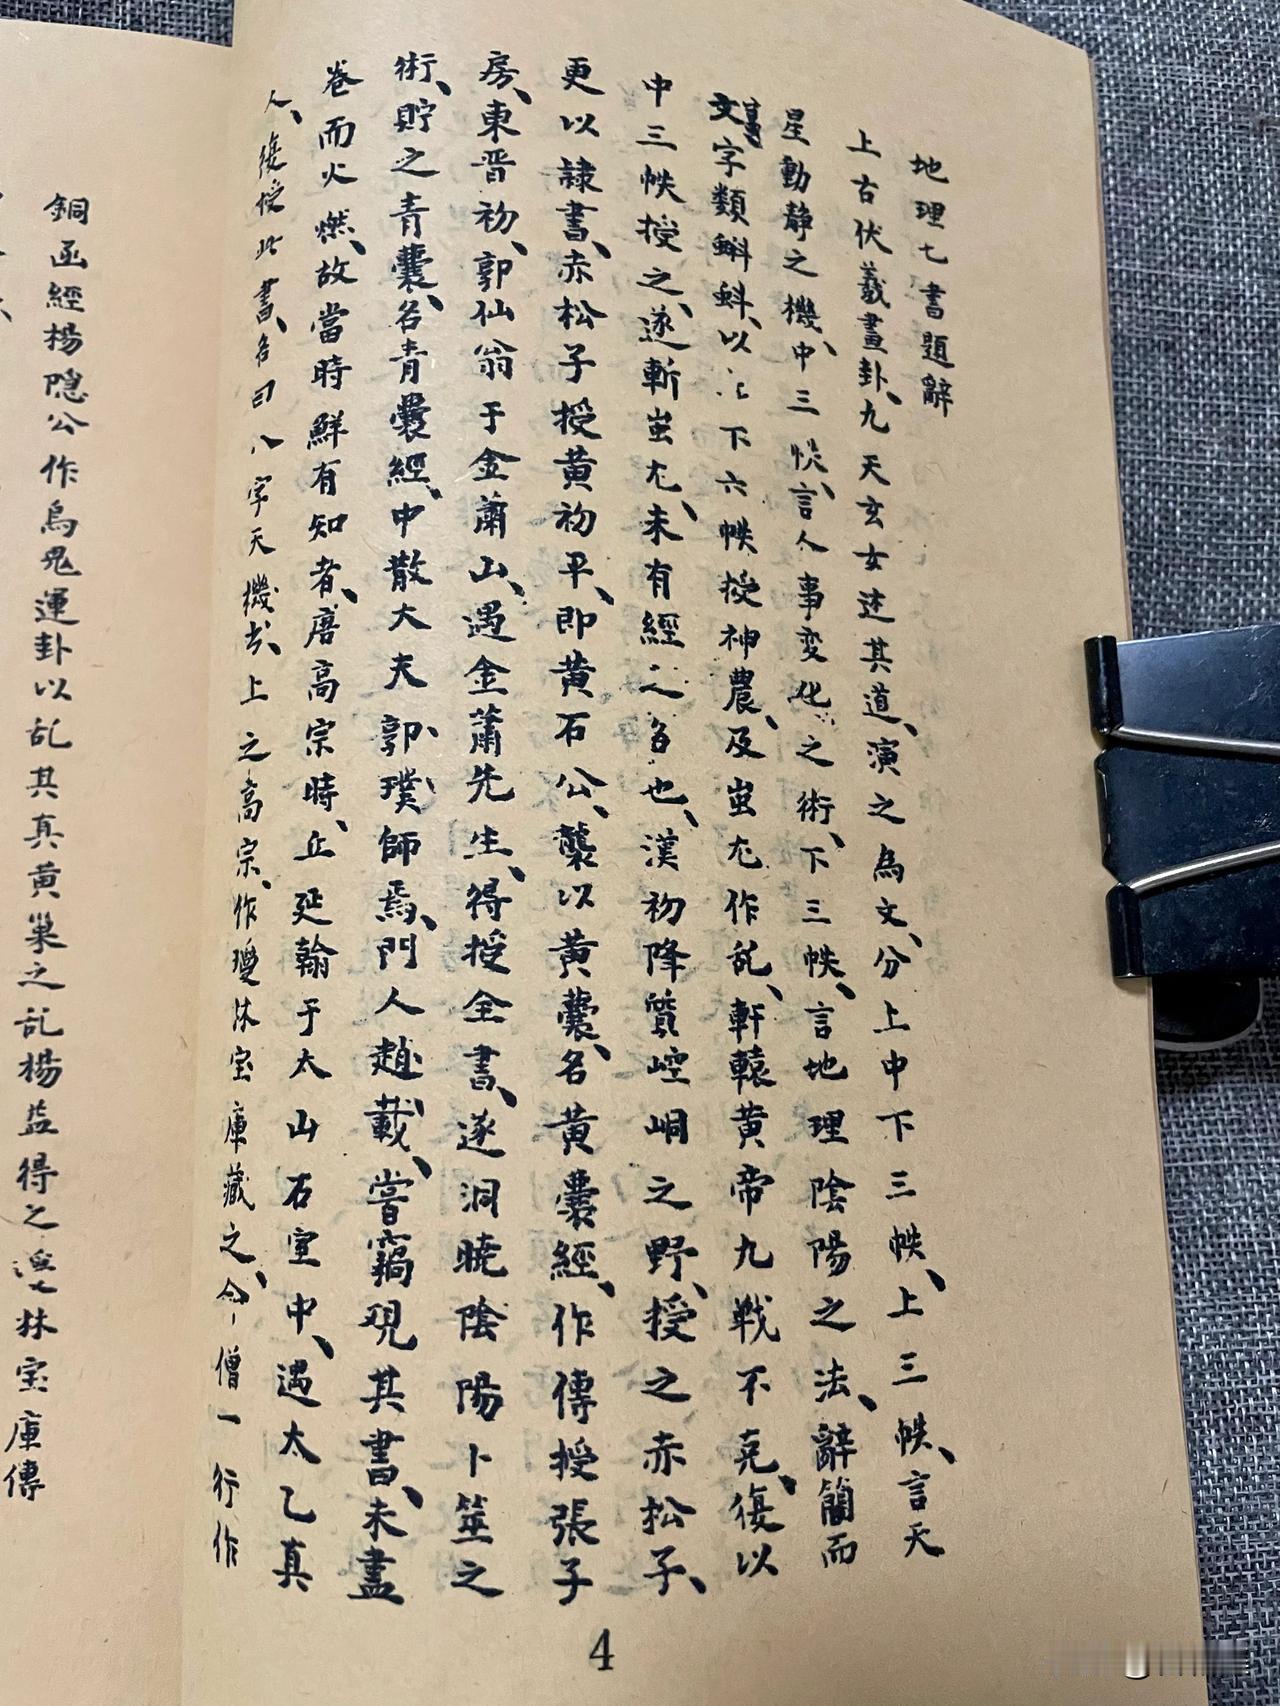 地理七書題辭
上古伏羲畫卦、九天玄女述其道、演之為文、分上中下三帙、上三帙、言天
星動靜之機、中三帙、言人事変化之術、下三帙、言地理陰陽之法、辭簡而
文字類蝌蚪、以上下六帙授神農、及蚩尤作乱、軒轅黄帝九戦不克、復以
中三帙授之、遂斬蚩尤、未有經之名也、漢初降質崆峒之野、授之赤松子、
更以隷書、赤松子授黄初平、即黄石公、襲以黄囊、名黄囊經、作傳授張子
房、東晋初、郭仙翁于金蕭山、遇金蕭先生、得授全書、遂洞曉陰陽卜筮之
術、貯之青囊、名青囊經、中散大夫郭璞師焉、門人趙載、嘗竊覌其書、未盡
卷而火燃、故當時鮮有知者、唐高宗時、丘延翰于太山石室中、遇太乙真
人、復授此書、名曰八字天機书、上之高宗、作瓊林宝庫藏之、令僧一行作
銅函經楊隐公作烏鬼運卦以乱其真黄巢之乱楊益得之瓊林宝庫傳
4